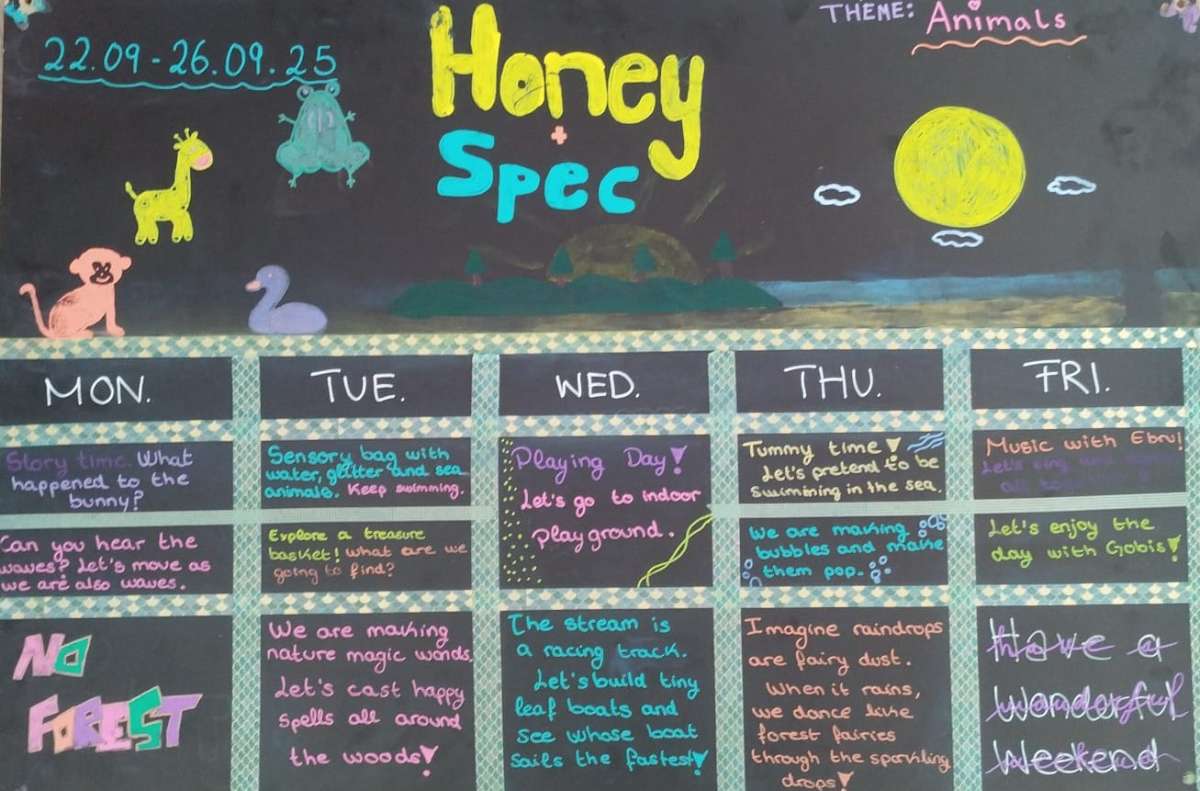 22.09-26.09.25
Honey
+
Spec
THEME: Animals
MON.
TUE.
WED.
THU.
FRI.
Story time. What
happened to the
bunny?
Sensory bag with
water, glitter and sea
animals. Keep swimming.
Playing Day!
Let's go to indoor
playground.
Tummy time!
Let's pretend to be
swimming in the sea.
Music with Ebru!
Let's sing
all
Can you hear the
waves? Let's move as
we are also waves.
Explore a treasure
basket! What are we
going to find?
We are making
bubbles and make
them pop.
Let's enjoy the
day with Gobis!
No
FOREST
We are making
nature magic wands.
Let's cast happy
spells all around
the woods!
The stream is
a racing track.
Let's build tiny
leaf boats and
see whose boat
sails the fastest!
Imagine raindrops
are fairy dust.
When it rains,
we dance like
forest fairies
through the sparkling
drops!
Have a
wonderful
weekend